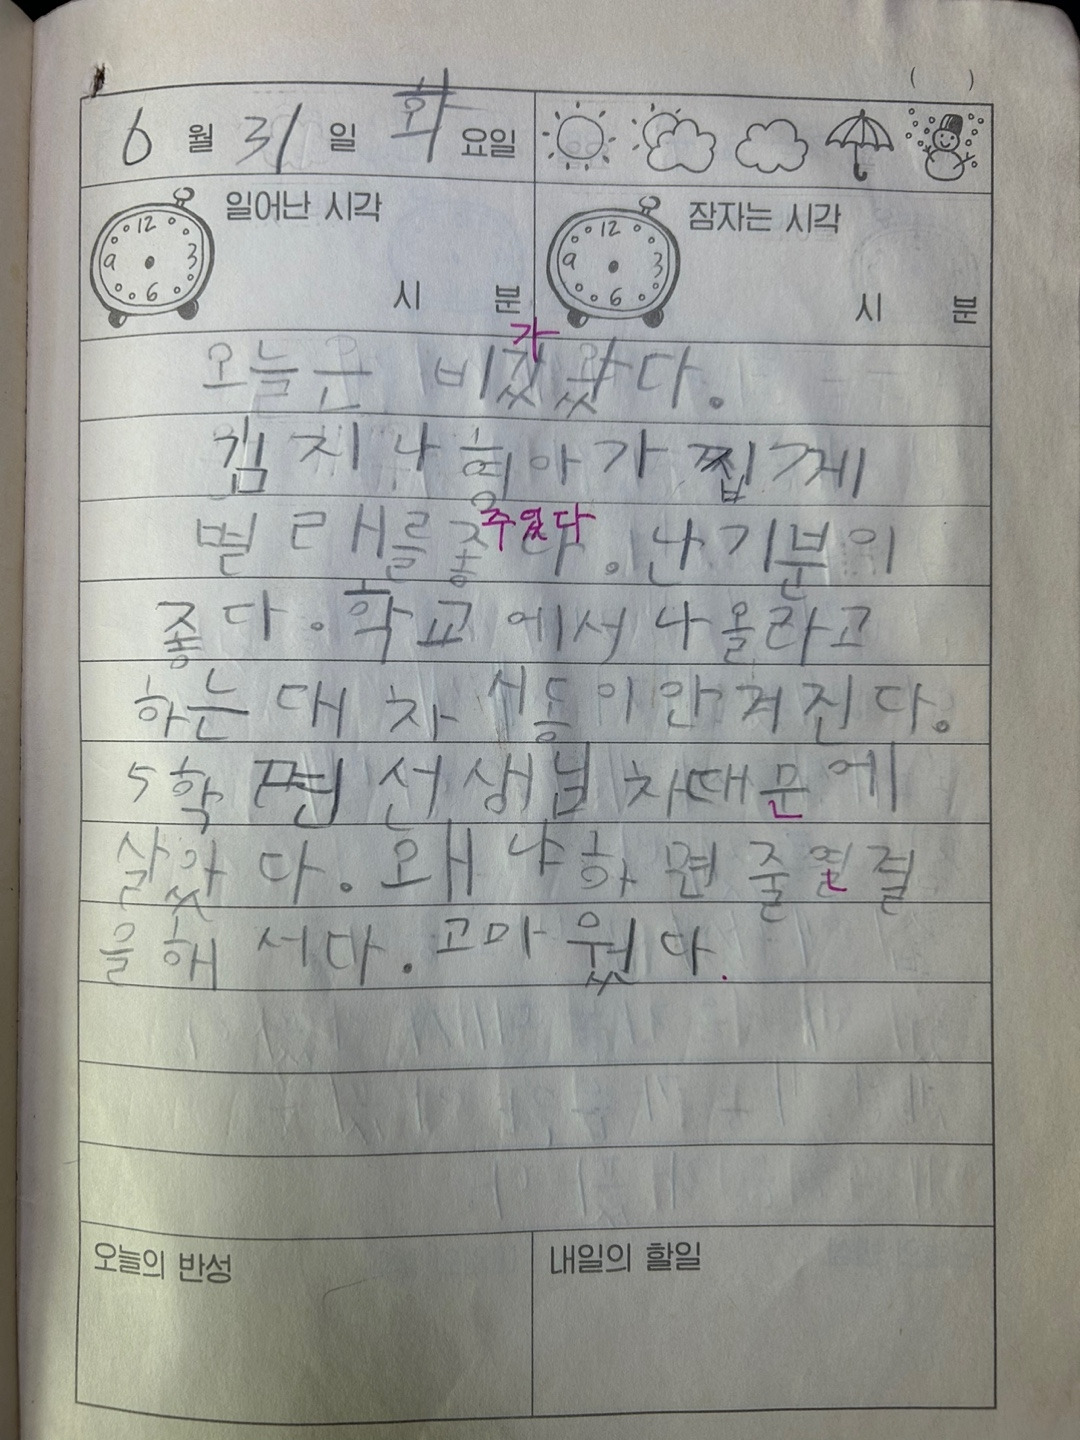 ( )
6 월 31 일 화 요일
12 9 3 6 일어난 시각 시 분
12 9 3 6 잠자는 시각 시 분
가
오늘은 비갔왔다.
김지나 형아가 찝게
벌래를 좋다. 난 기분이
주었다
좋다. 학교에서 나올라고
하는대 차 시동이 안겨진다.
5학면 선생님 차때문에
살았다. 왜냐하면 줄열결
을해서다. 고마웠다.
오늘의 반성
내일의 할일